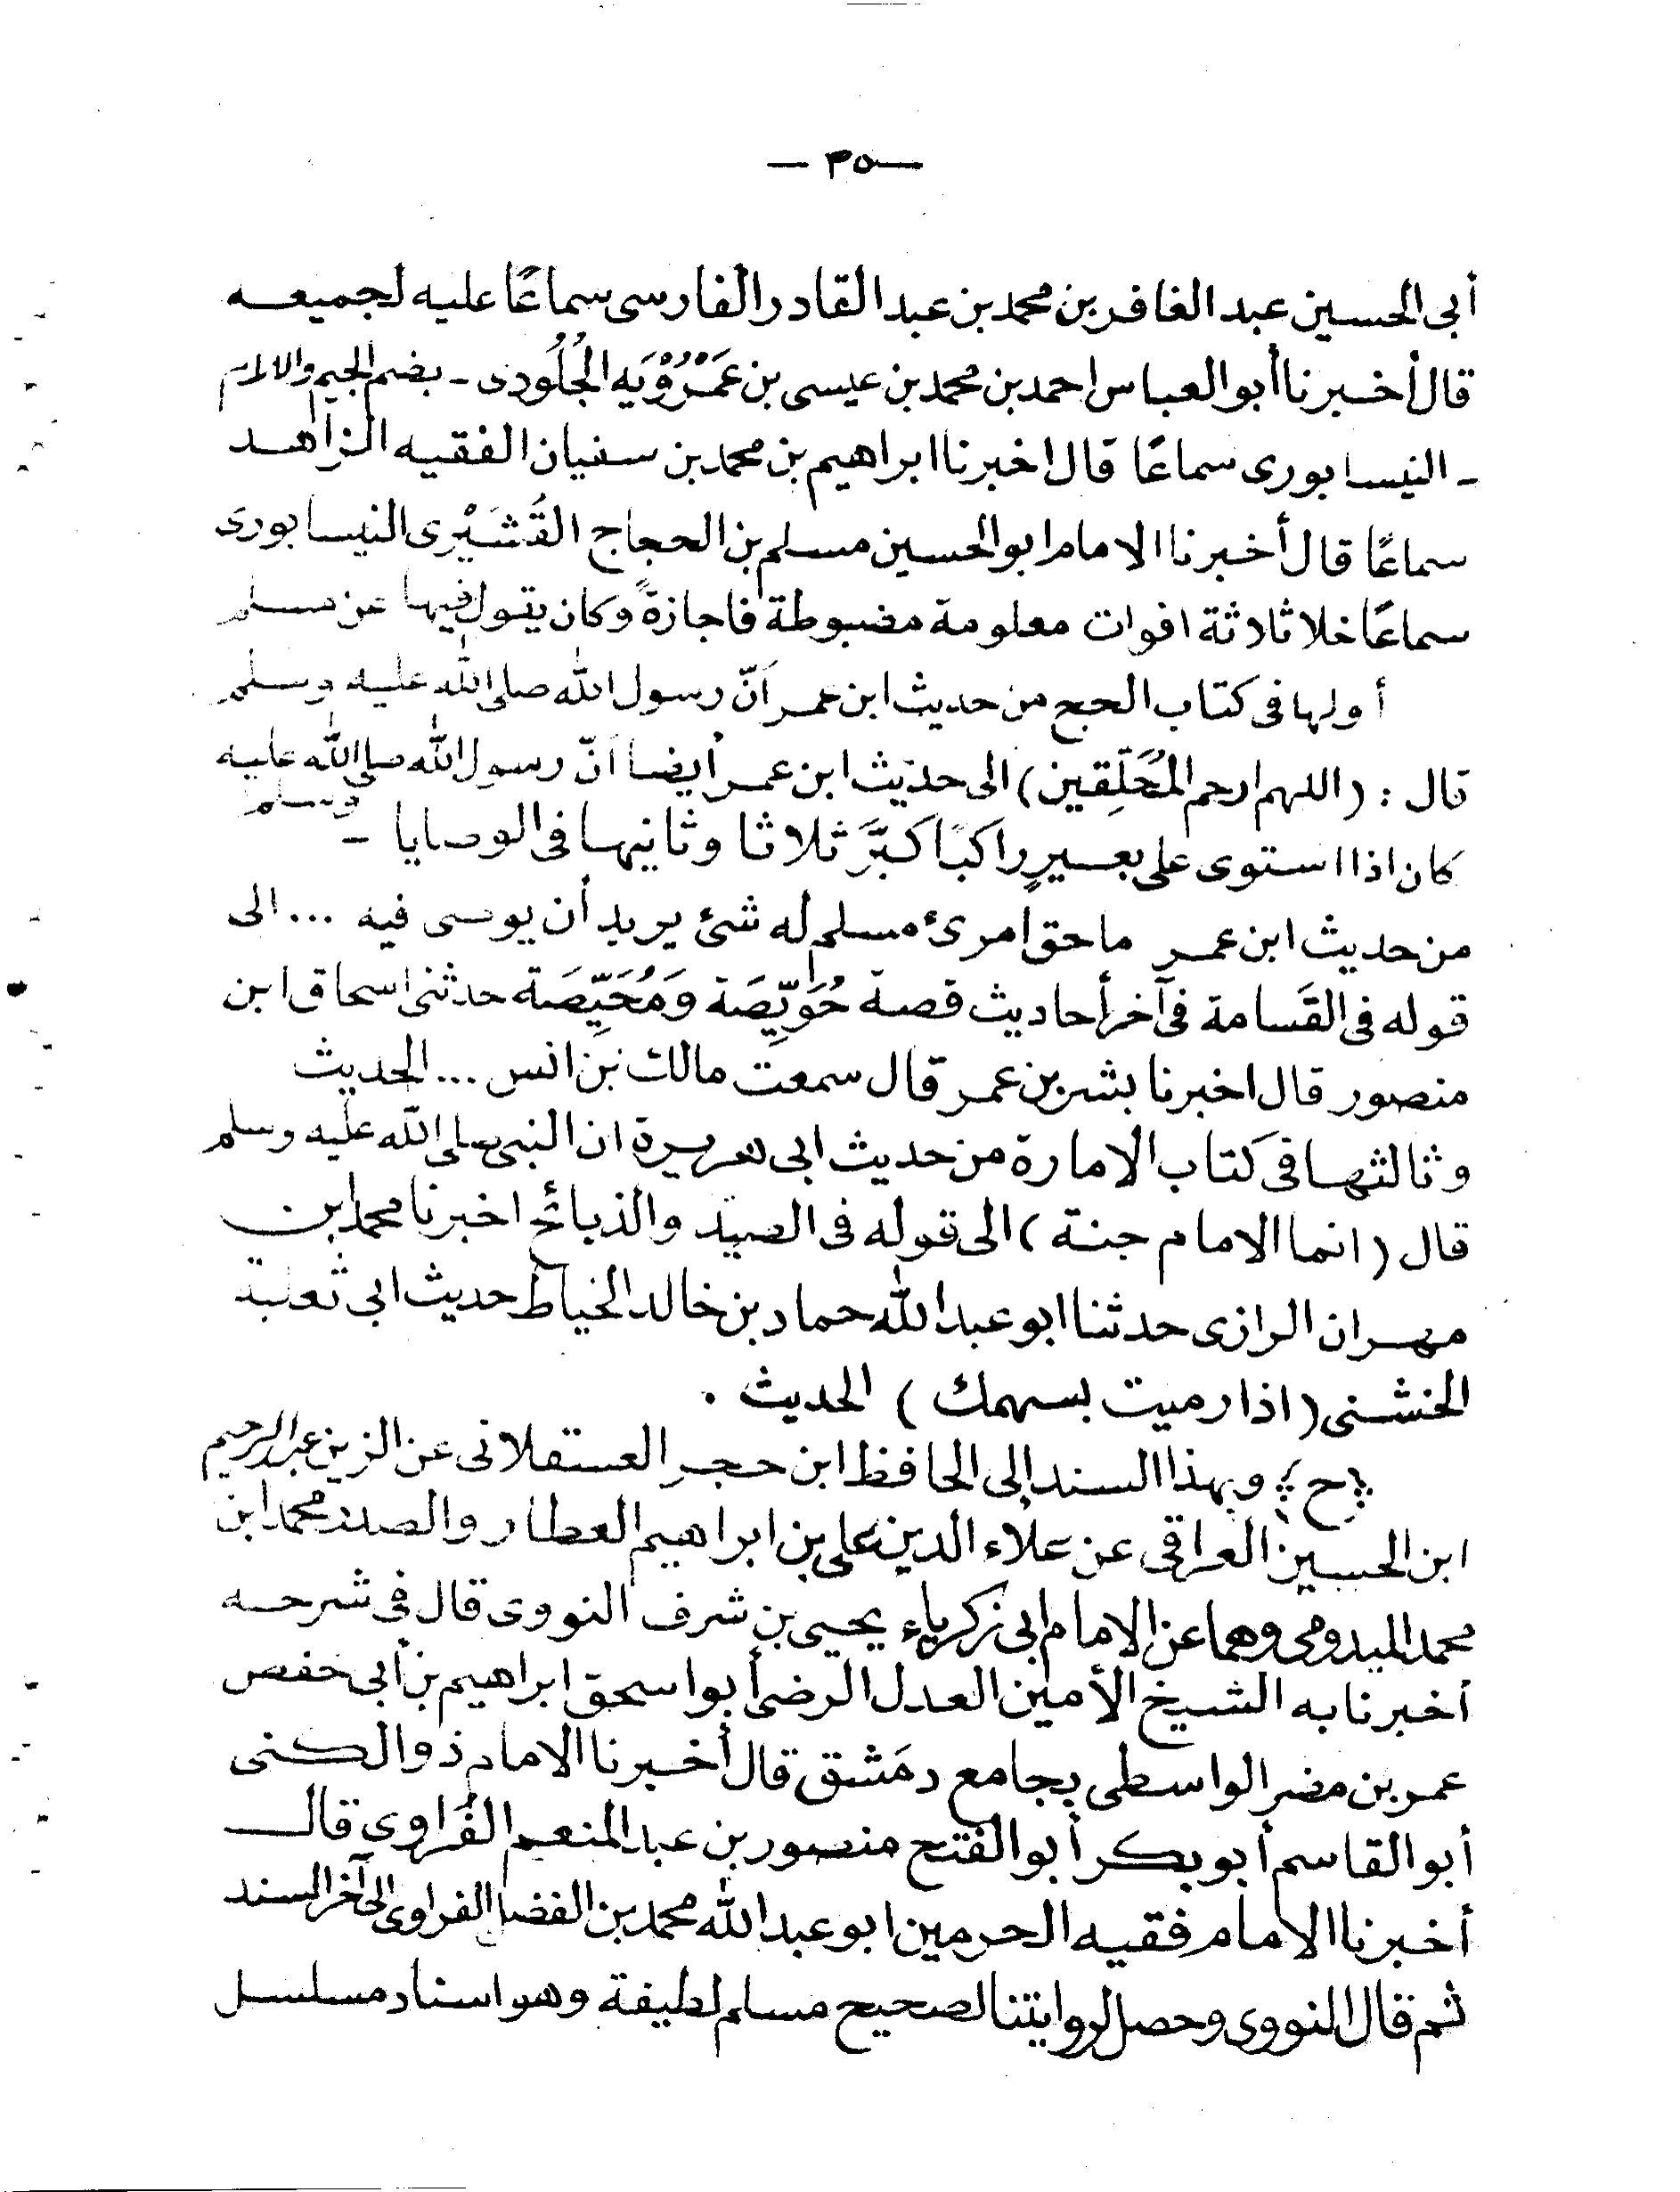 — ٣٥ —
أبى الحسين عبد الغافر بن محمد بن عبد القادر الفارسى سماعًا عليه لجميعه
قال أخبرنا أبو العباس احمد بن محمد بن عيسى بن عَمْرُوْيَه الجُلُودى - بضم الجيم والالام
- النيسابورى سماعًا قال اخبرنا ابراهيم بن محمد بن سفيان الفقيه الزاهد
سماعًا قال أخبرنا الامام ابو الحسين مسلم بن الحجاج القُشَيْرى النيسابورى
سماعًا خلا ثلاثة افوات معلومة مضبوطة فاجازةً وكان يقول فيها عن مسلم
أولها فى كتاب الحج من حديث ابن عمر أنّ رسول الله صلى الله عليه وسلم
قال : (اللهم ارحم المُحَلِّقين) الى حديث ابن عمر أيضا أنّ رسول الله صلى الله عليه وسلم
كان اذا استوى على بعيرٍ راكبًا كَبَّرَ ثلاثا وثانيها فى الوصايا -
من حديث ابن عمر ما حق امرئ مسلم له شئ يريد أن يوصى فيه ... الى
قوله فى القَسامة فى آخر أحاديث قصة حُوَيِّصَة وَمُحَيِّصَة حدثنى اسحاق ابن
منصور قال اخبرنا بشر بن عمر قال سمعت مالك بن انس ... الحديث
وثالثها فى كتاب الامارة من حديث ابى هريرة ان النبى صلى الله عليه وسلم
قال (انما الامام جنة) الى قوله فى الصيد والذبائح اخبرنا محمد ابن
مهران الرازى حدثنا ابو عبد الله حماد بن خالد الخياط حديث ابى ثعلبة
الخشنى (اذا رميت بسهمك) الحديث .
(ح) وبهذا السند إلى الحافظ ابن حجر العسقلانى عن الزين عبد الرحيم
ابن الحسين العراقى عن علاء الدين على بن ابراهيم العطار والصدر محمد ابن
محمد الميدومى وهما عن الامام ابى زكرياء يحيى بن شرف النووى قال فى شرحه
أخبرنا به الشيخ الأمين العدل الرضى أبو اسحق ابراهيم بن أبى حفص
عمر بن مضر الواسطى بجامع دمَشق قال أخبرنا الامام ذو الكنى
أبو القاسم أبو بكر أبو الفتح منصور بن عبد المنعم الفُراوى قال
أخبرنا الامام فقيه الحرمين ابو عبد الله محمد بن الفضل الفراوى الى آخر السند
ثم قال النووى وحصل لروايتنا لصحيح مسلم لطيفة وهو اسناد مسلسل